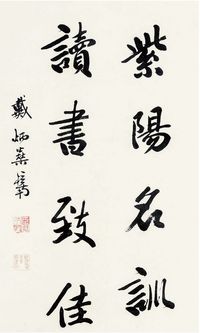 紫陽名訓
讀書致佳
戴炳燊